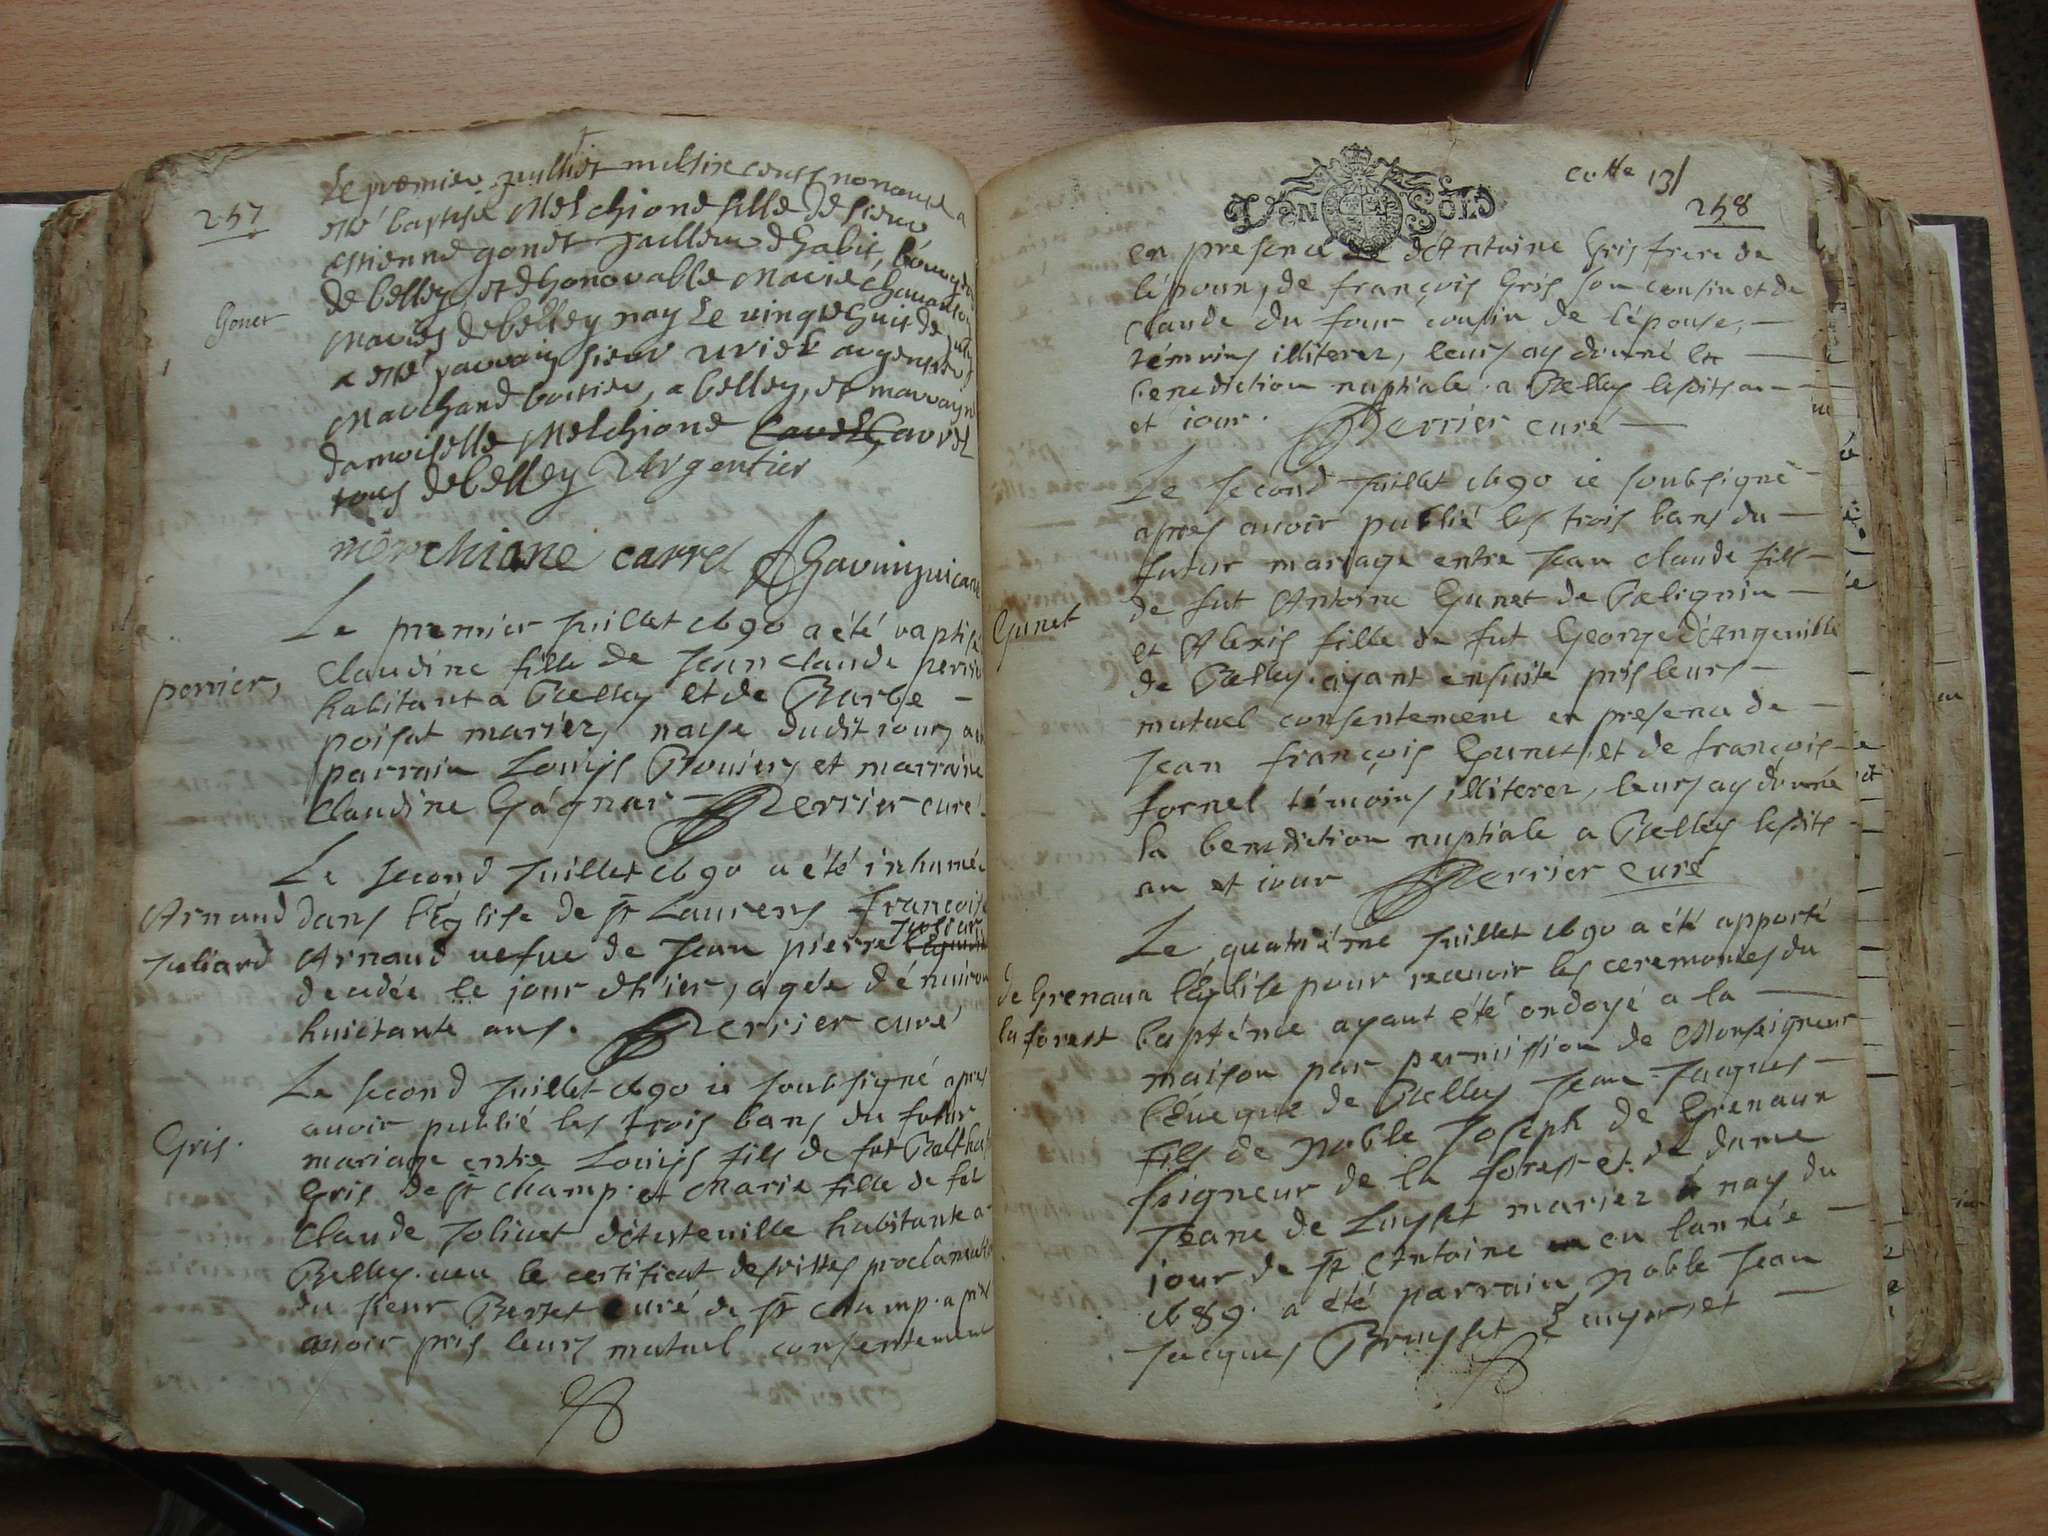 257
Le premier Juilliet mil six cents nonante a
esté baptisée Melchione fille de sieur
estienne gonet tailleur d'habit, bourgeois
de belley, et d'honorable Marie
Gonet
Mariés de belley nay le vingt huit de
a esté parrain sieur argentier
Marchand a belley, et marrayne
damoiselle Melchione Carrel
tous de belley Argentier
merchiane carrel
Le premier Juillet 1690 a été baptisé
Claudine fille de Jean Claude perrier
perrier,
habitant a Belley et de Barbe —
poisat mariéz, naye dudit jour, a été
parrain Louys Rouier et marraine
Claudine Gágnar — Perrier curé.
Le second Juillet 1690 a été inhumée
Arnaud dans l'Église de st Laurens Françoise
Juliard
Juliard Arnaud uefue de Jean pierre
decedée le jour d'hier, ágée d'énuiron
huictante ans. Perrier curé
Le second Juillet 1690 ie soubsigné apres
auoir publié les trois bans du futur
Gris.
mariage entre Louys fils de fut Balthasar
Gris de st champ. et Marie fille de fut
Claude Joliuet habitante a
Belley. ueu le certificat desdittes proclamations
du sieur curé de st champ. apres
auoir pris leurs mutuel consentement
cotte 131
258
DEN SOLS
en presence d'Antoine Gris frere de
l'époux, de françois Gris son cousin et de
Claude du four cousin de l'épouse, —
témoins illiterez, leurs ay donné la —
benediction nuptiale a Belley lesdits an —
et iour. Perrier curé —
Le second Juillet 1690 ie soubsigné —
apres auoir publié les trois bans du —
futur mariage entre Jean Claude fils —
de fut Antoine Gunet de Belignin —
Gunet
et Alexis fille de fut George d'Angeuille
de Belley. ayant ensuite pris leurs —
mutuel consentement en presence de —
Jean françois Gunet, et de françois —
fornel témoins illiterez, leurs ay donné
la benediction nuptiale a Belley lesdits
an et iour Perrier curé
Le quatriéme Juillet 1690 a été apporté
de Grenaux l'Église pour receuoir les ceremonies du
la forest baptéme ayant été ondoyé a la —
maison par permission de Monseigneur
l'Éueque de Belley Jean Jacques —
fils de Noble Joseph de Grenaux
seigneur de la forest et de dame
Jeane de Luyset mariez nay du
jour de st Antoine en l'année —
1689. a été parrain Noble Jean
Jacques